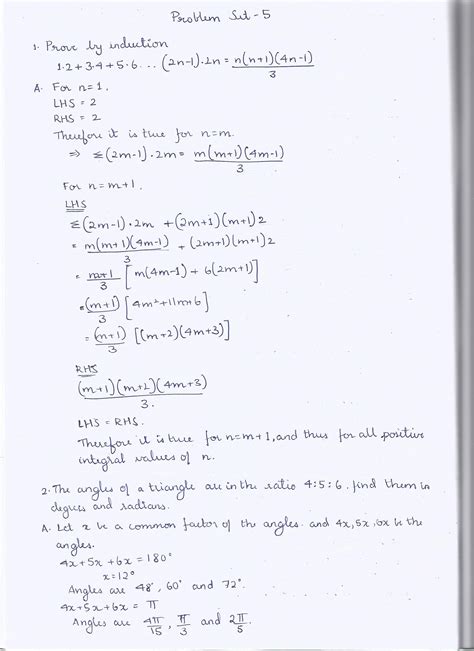 Problem Set - 5
1. Prove by induction
1.2 + 3.4 + 5.6 ... (2n-1).2n = n(n+1)(4n-1)/3
A. For n=1,
LHS = 2
RHS = 2
Therefore it is true for n=m.
⇒ Σ(2m-1).2m = m(m+1)(4m-1)/3
For n=m+1,
LHS
Σ(2m-1).2m + (2m+1)(m+1)2
= m(m+1)(4m-1)/3 + (2m+1)(m+1)2
= m+1/3 [m(4m-1) + 6(2m+1)]
= (m+1)/3 [4m²+11m+6]
= (m+1)/3 [(m+2)(4m+3)]
RHS
(m+1)(m+2)(4m+3)/3.
LHS = RHS.
Therefore it is true for n=m+1, and thus for all positive
integral values of n.
2. The angles of a triangle are in the ratio 4:5:6, find them in
degrees and radians.
A. Let x be a common factor of the angles. and 4x, 5x, 6x be the
angles.
4x+5x+6x = 180°
x = 12°
Angles are 48°, 60° and 72°.
4x+5x+6x = π
Angles are 4π/15, π/3 and 2π/5.